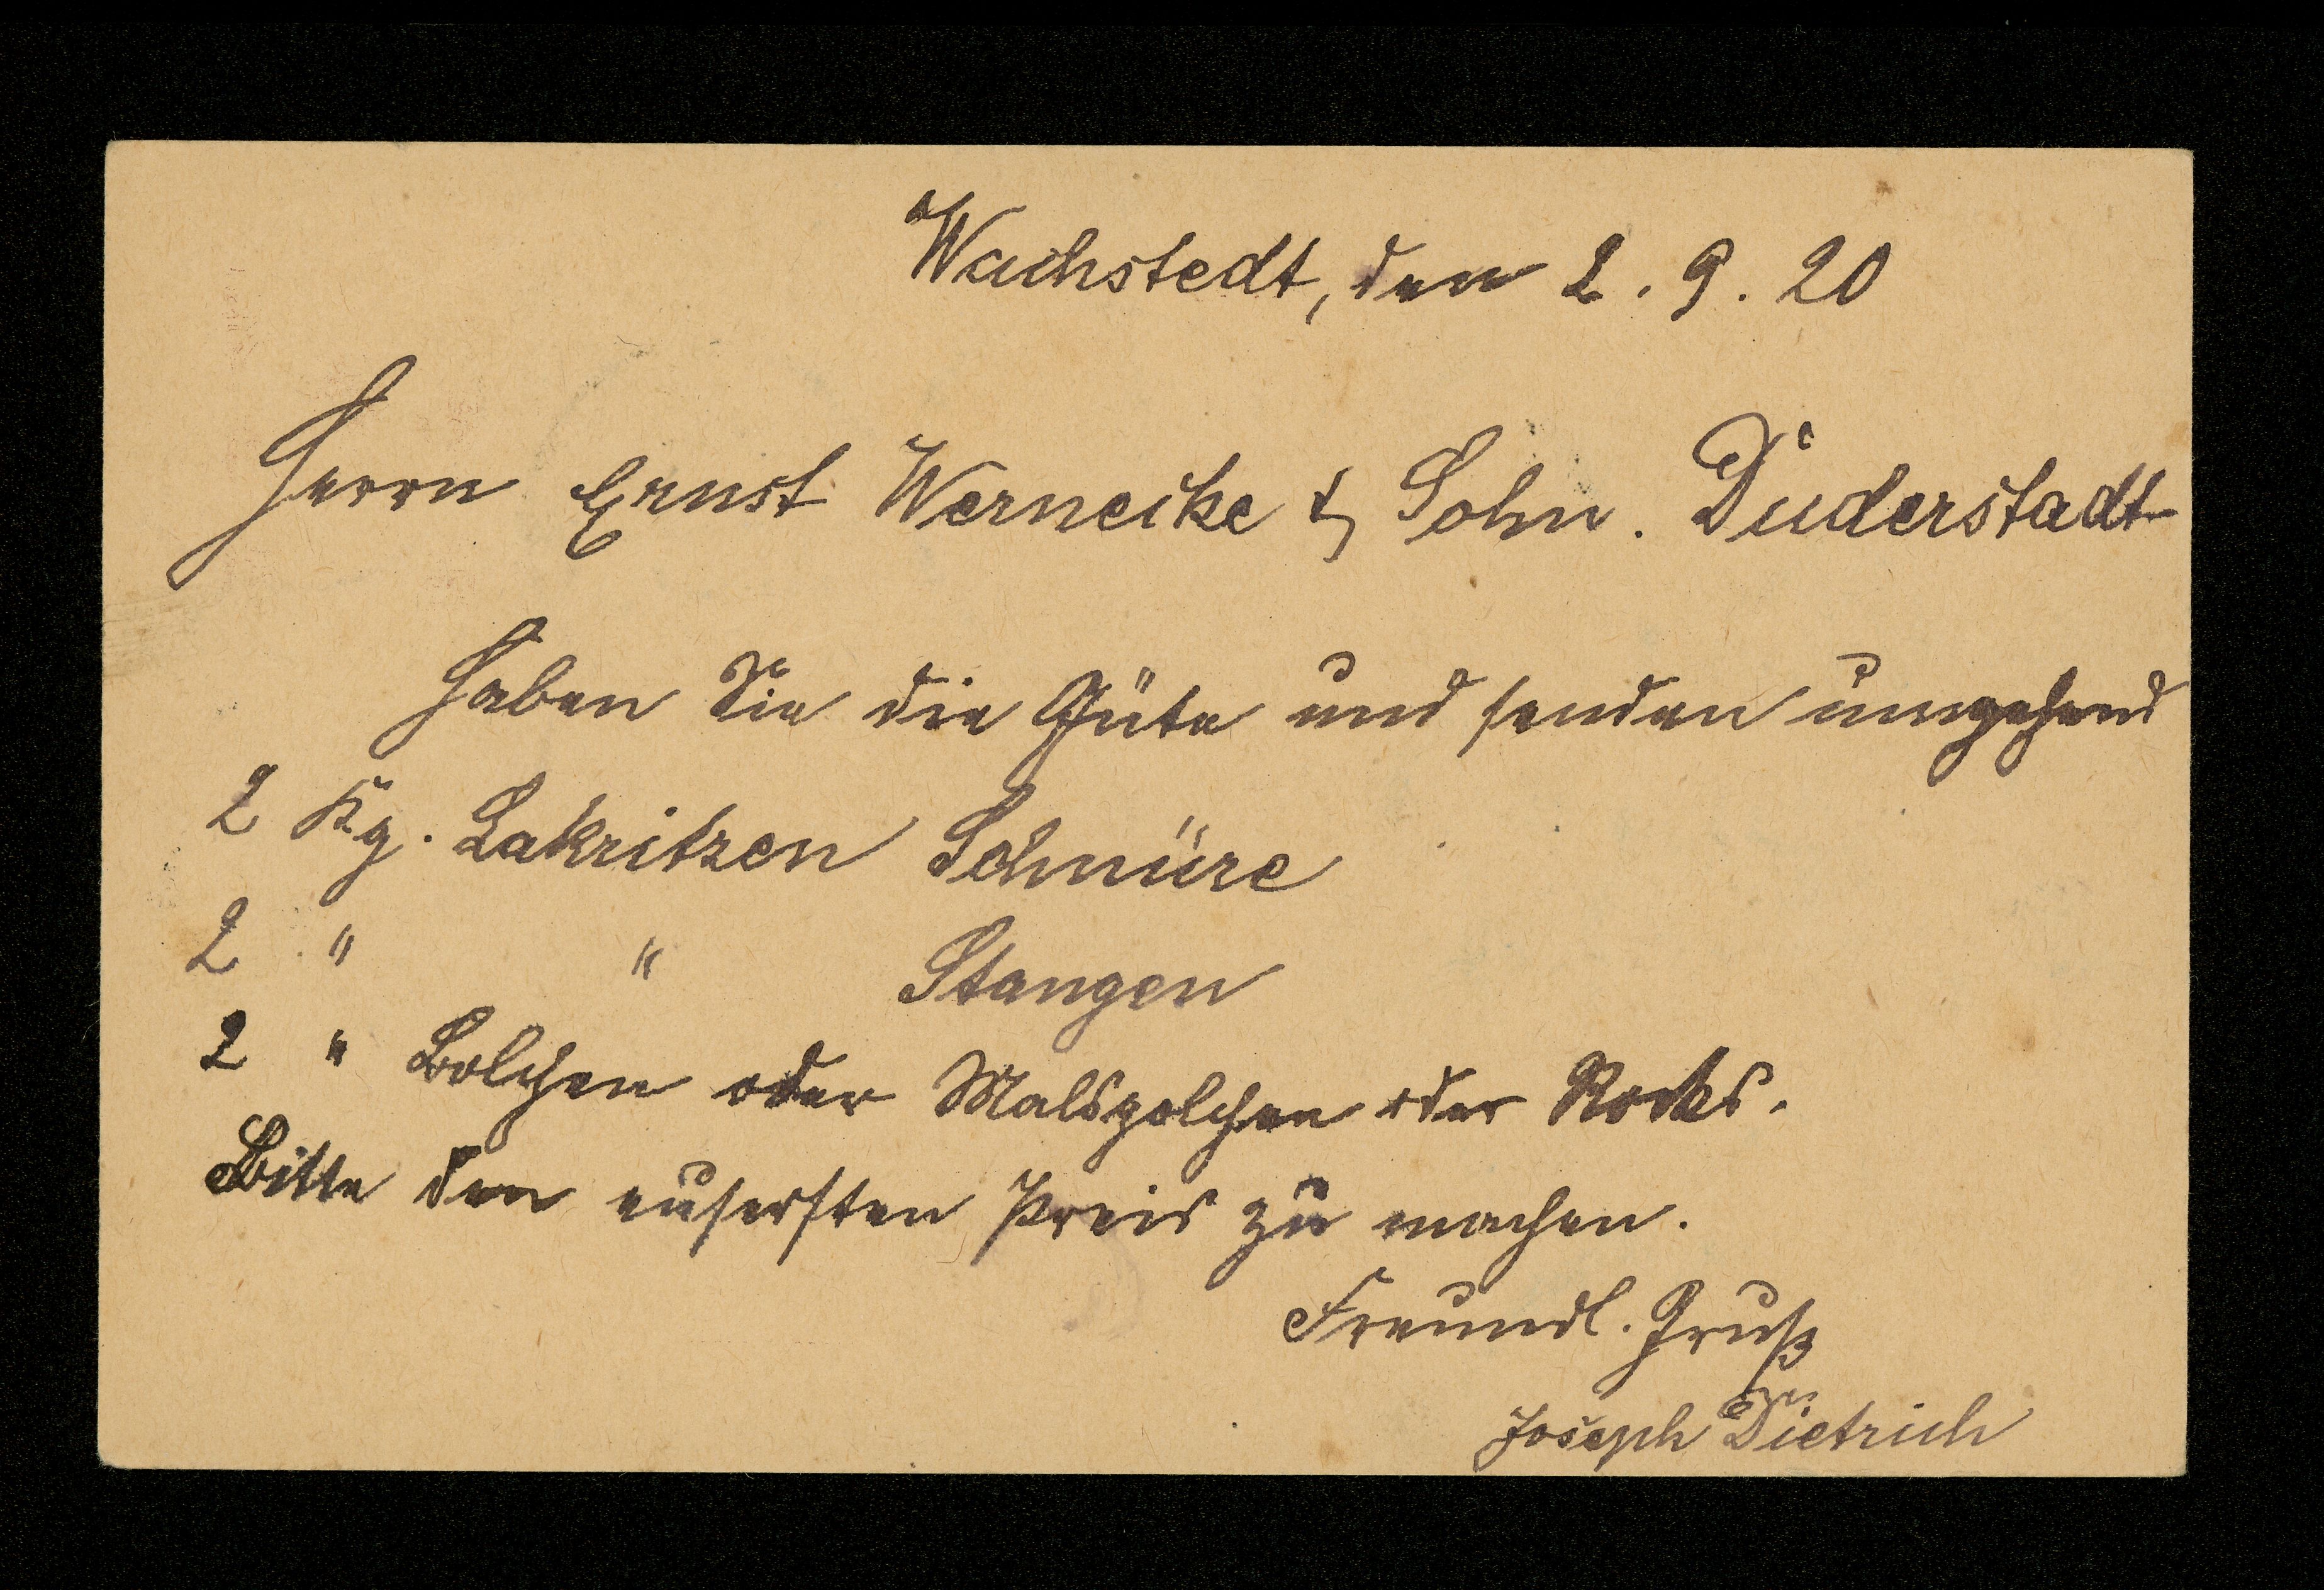 Wachstedt, den 2. 9. 20
Herrn Ernst Werneike & Sohn. Duderstadt
Haben Sie die Güte und senden umgehend
2 Kg. Lakritzen Schnüre
2 " " Stangen
2 " Bolchen oder Malsbolchen oder Rocks.
Bitte den eusersten Preis zu machen.
Freundl. Gruß
Joseph Dietrich